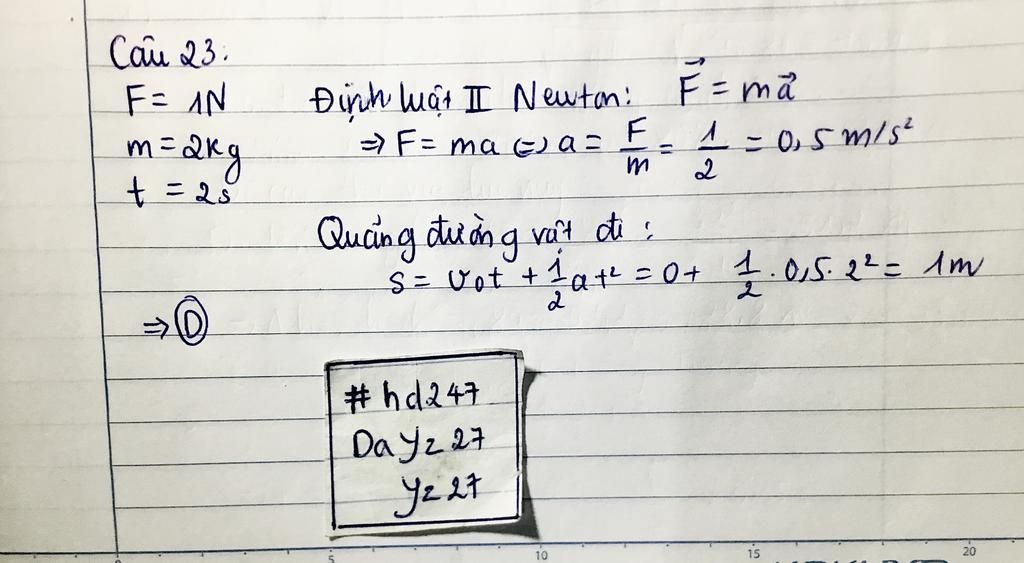 Câu 23:
F = 1N Định luật II Newton: F⃗ = ma⃗
m = 2kg ⇒ F = ma ⇔ a = F/m = 1/2 = 0,5 m/s²
t = 2s
Quãng đường vật đi:
s = v₀t + 1/2 at² = 0 + 1/2 . 0,5 . 2² = 1m
⇒ D
#hd247
Da yz 27
yz 27
0 5 10 15 20